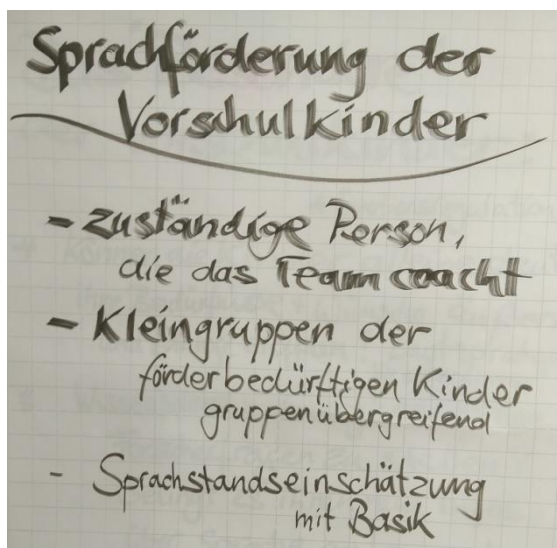 Sprachförderung der
Vorschulkinder
- zuständige Person,
die das Team coacht
- Kleingruppen der
förderbedürftigen Kinder
gruppenübergreifend
- Sprachstandseinschätzung
mit Basik